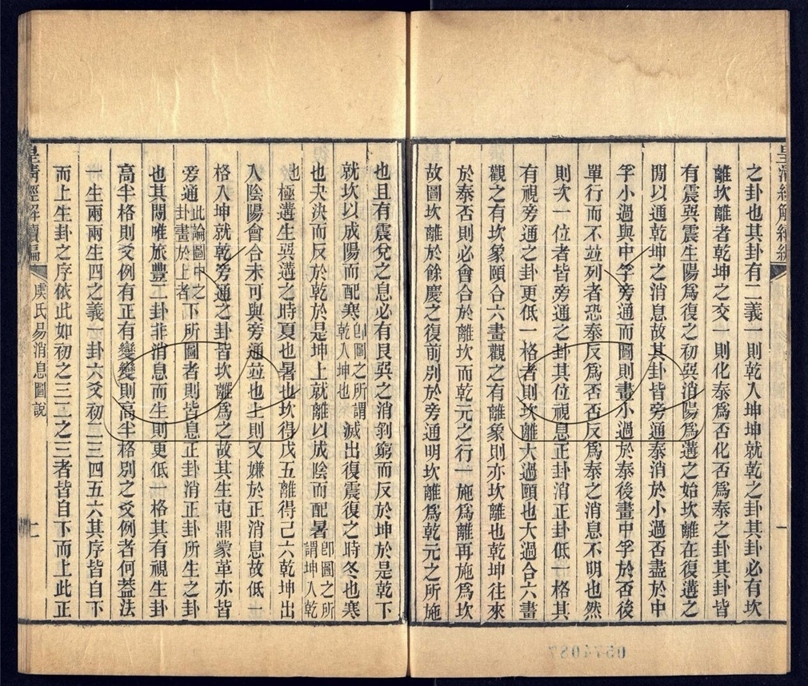 皇清經解續編
之卦也其卦有二義一則乾入坤坤就乾之卦其卦必有坎
離坎離者乾坤之交一則化泰為否化否為泰之卦其卦皆
有震巽震生陽為復之初巽消陽為遘之始坎離在復遘之
閒以通乾坤之消息故其卦皆旁通泰消於小過否盡於中
孚小過與中孚旁通而圖則畫小過於泰後畫中孚於否後
單行而不並列者恐泰反為否否反為泰之消息不明也然
則次一位者皆旁通之卦其位視息正卦消正卦低一格其
有視旁通之卦更低一格者則坎離大過頤也大過合六畫
觀之有坎象頤合六畫觀之有離象則亦坎離也乾坤往來
於泰否則必會合於離坎而乾元之行一施為離再施為坎
故圖坎離於餘慶之復前別於旁通明坎離為乾元之所施
也且有震兌之息必有艮巽之消剝窮而反於坤於是乾下
就坎以成陽而配寒卽圖之所謂乾入坤也滅出復震復之時冬也寒
也夬決而反於乾於是坤上就離以成陰而配暑卽圖之所謂坤入乾
也極遘生巽遘之時夏也暑也坎得戊五離得己六乾坤出
入陰陽會合未可與旁通並也上則又嫌於正消息故低一
格入坤就乾旁通之卦皆坎離為之故其生屯鼎蒙革亦皆
旁通此論圖中之卦畫於上者下所圖者則皆息正卦消正卦所生之卦
也其閒唯旅豐二卦非消息而生則更低一格其有視生卦
高半格則爻例有正有變變則高半格別之爻例者何蓋法
一生兩兩生四之義一卦六爻初二三四五六其序皆自下
而上生卦之序依此如初之三二之三者皆自下而上此正
皇清經解續編
虞氏易消息圖說
十一
0574087